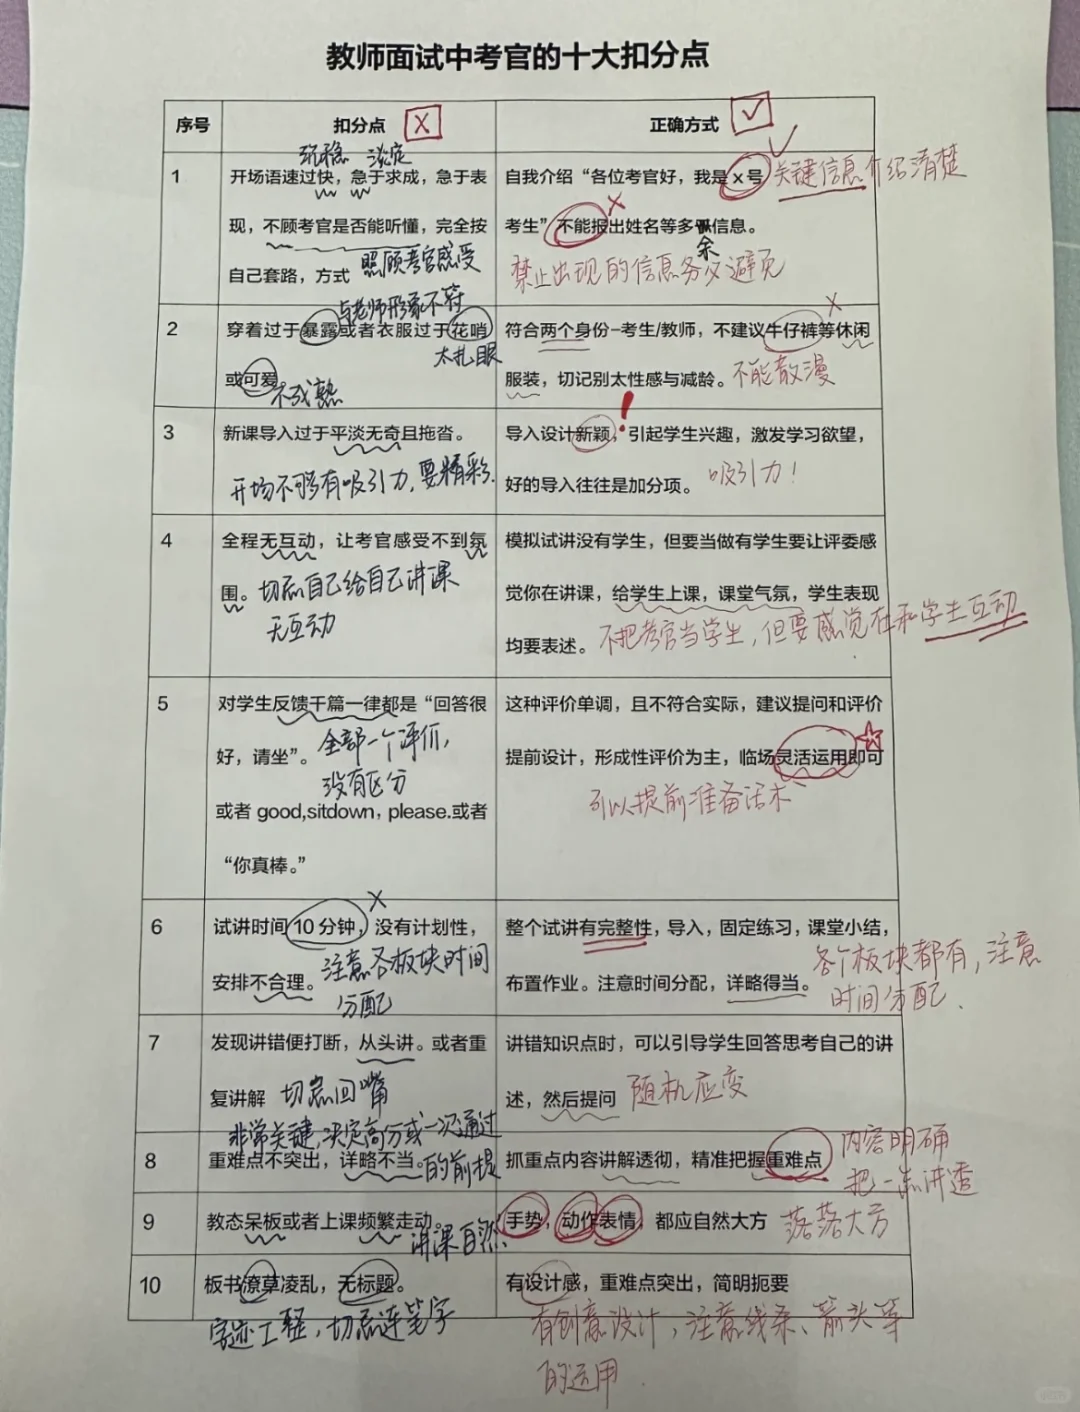 教师面试中考官的十大扣分点
序号 扣分点 X 正确方式 ✓
沉稳 淡定
1 开场语速过快，急于求成，急于表
现，不顾考官是否能听懂，完全按
自己套路，方式 照顾考官感受
自我介绍“各位考官好，我是 x 号 关键信息介绍清楚
考生” 不能报出姓名等多余信息。
禁止出现的信息务必避免
与老师形象不符
2 穿着过于暴露或者衣服过于花哨
太扎眼
或可爱 不成熟
符合两个身份–考生/教师，不建议牛仔裤等休闲
服装，切记别太性感与减龄。不能散漫
3 新课导入过于平淡无奇且拖沓。
开场不够有吸引力，要精彩.
导入设计新颖，引起学生兴趣，激发学习欲望，
好的导入往往是加分项。 吸引力！
4 全程无互动，让考官感受不到氛
围。 切忌自己给自己讲课
无互动
模拟试讲没有学生，但要当做有学生要让评委感
觉你在讲课，给学生上课，课堂气氛，学生表现
均要表述。 不把考官当学生，但要感觉在和学生互动
5 对学生反馈千篇一律都是“回答很
好，请坐”。 全部一个评价，
没有区分
或者 good,sitdown，please.或者
“你真棒。”
这种评价单调，且不符合实际，建议提问和评价
提前设计，形成性评价为主，临场灵活运用即可
可以提前准备话术
6 试讲时间 10 分钟，没有计划性，
安排不合理。 注意各板块时间
分配
整个试讲有完整性，导入，固定练习，课堂小结，
布置作业。注意时间分配，详略得当。
各个板块都有，注意
时间分配.
7 发现讲错便打断，从头讲。或者重
复讲解 切忌回嘴
讲错知识点时，可以引导学生回答思考自己的讲
述，然后提问 随机应变
非常关键，决定高分或一次通过
8 重难点不突出，详略不当。的前提
抓重点内容讲解透彻，精准把握重难点
内容明确
把一点讲透
9 教态呆板或者上课频繁走动。
讲课自然.
手势，动作表情，都应自然大方 落落大方
10 板书潦草凌乱，无标题。
字迹工整，切忌连笔字
有设计感，重难点突出，简明扼要
有创意设计，注意线条、箭头等
的运用.